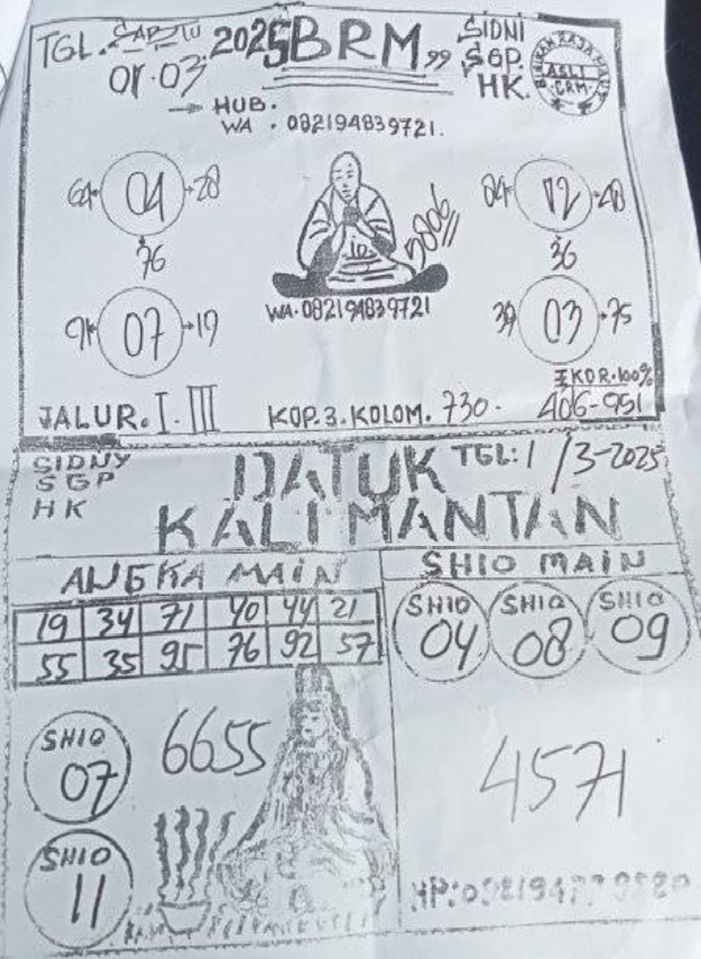 TGL. SABTU 2025 BRM 99 SIDNI
01.03. SGP.
HK.
ASLI
CRM
HUB.
WA . 082194839721.
64 04 28
76
84 12 48
36
5806
91 07 19
39 03 75
WA. 082194839721
EKOR.100%
JALUR. I. III KOP. 3. KOLOM. 730. 406-951
SIDNY
SGP
HK
DATUK TGL: 1/3-2025
KALIMANTAN
ANGKA MAIN
19 34 71 40 44 21
55 35 95 76 92 57
SHIO MAIN
SHIO 04
SHIO 08
SHIO 09
SHIO 07
6655
4571
SHIO 11